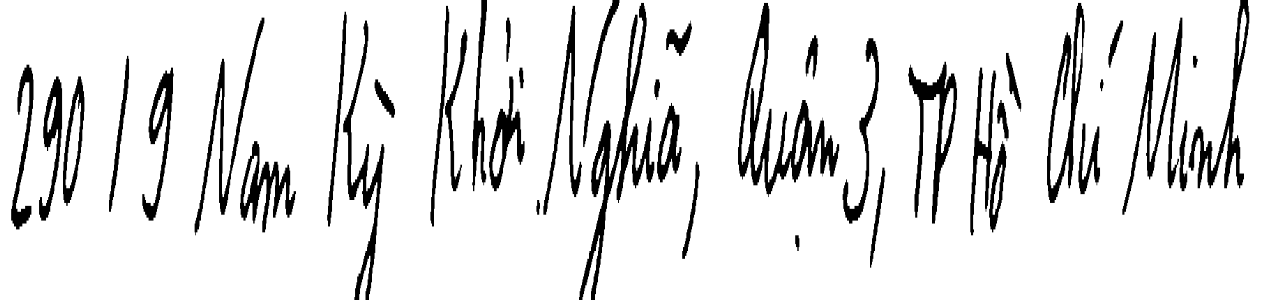 290/9 Nam Kỳ Khởi Nghĩa, Quận 3, TP Hồ Chí Minh